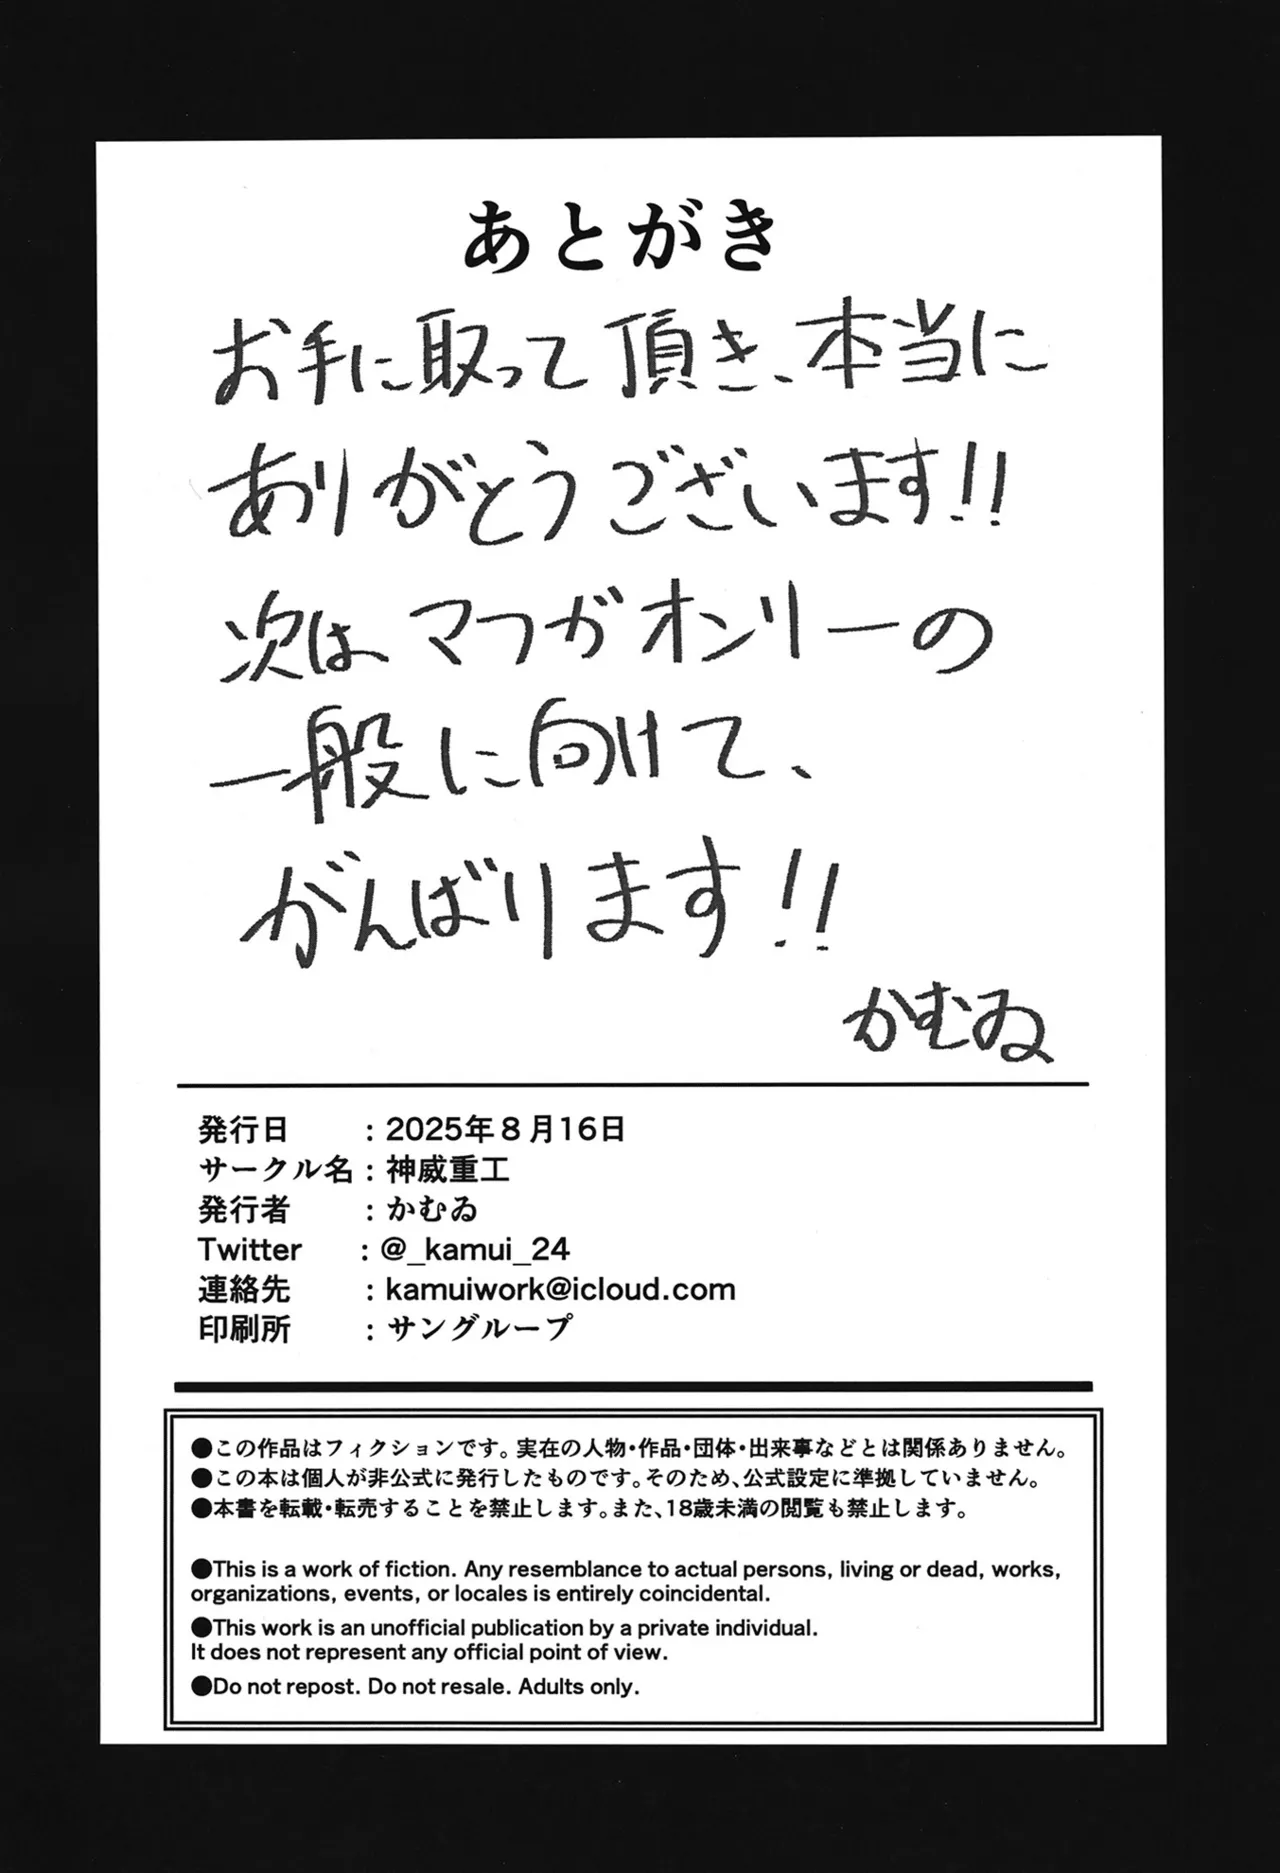 あとがき
お手に取って頂き、本当に
ありがとうございます!!
次は マフガオンリーの
一般に向けて、
がんばります!!
かむゐ
発行日 : 2025年8月16日
サークル名 : 神威重工
発行者 : かむゐ
Twitter : @_kamui_24
連絡先 : kamuiwork@icloud.com
印刷所 : サングループ
●この作品はフィクションです。実在の人物・作品・団体・出来事などとは関係ありません。
●この本は個人が非公式に発行したものです。そのため、公式設定に準拠していません。
●本書を転載・転売することを禁止します。また、18歳未満の閲覧も禁止します。
●This is a work of fiction. Any resemblance to actual persons, living or dead, works,
organizations, events, or locales is entirely coincidental.
●This work is an unofficial publication by a private individual.
It does not represent any official point of view.
●Do not repost. Do not resale. Adults only.